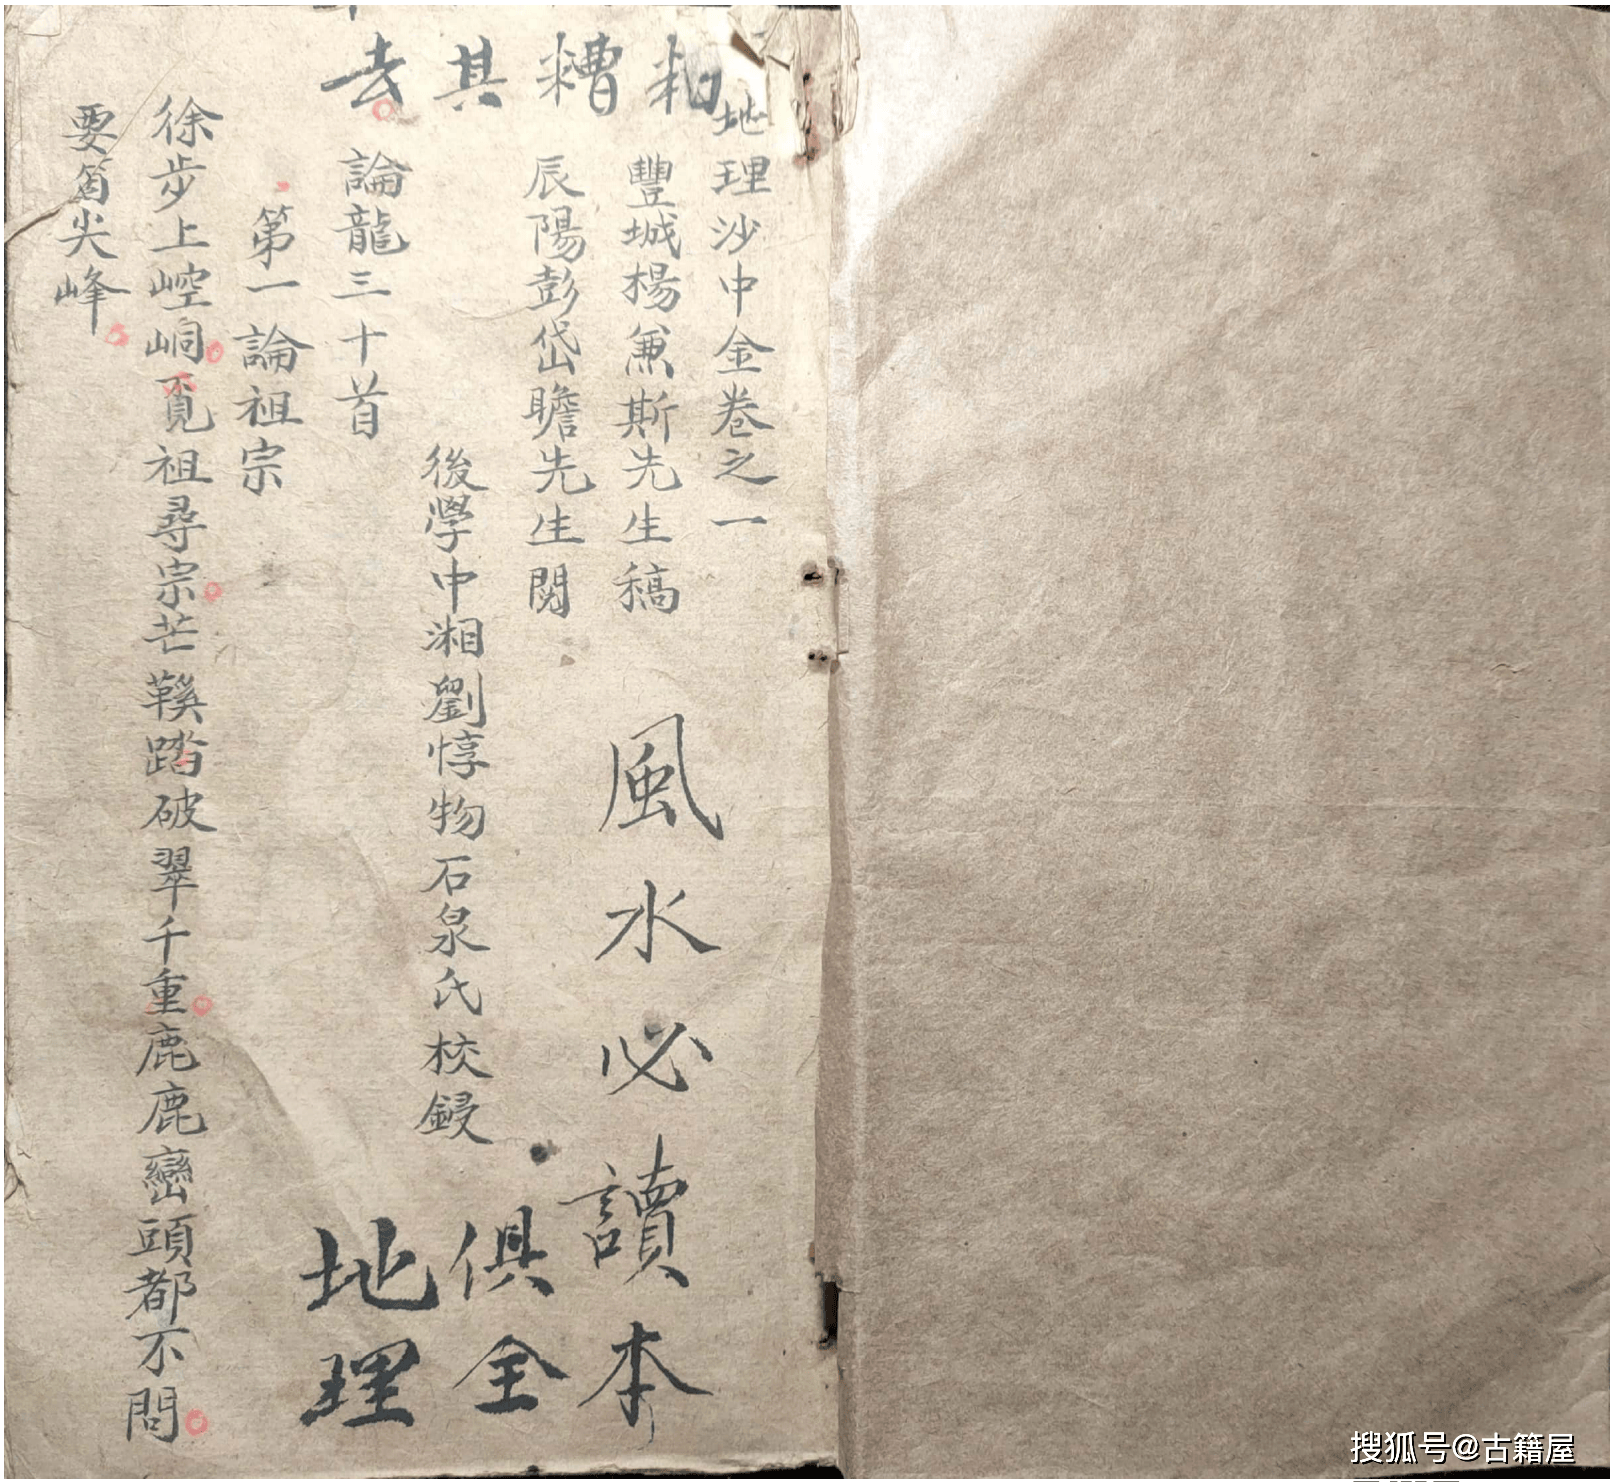 地理沙中金卷之一
豐城楊兼斯先生稿
辰陽彭岱瞻先生閱
後學中湘劉惇物石泉氏校鋟
論龍三十首
第一論祖宗
徐步上崆峒覓祖尋宗芒鞵踏破翠千重鹿鹿巒頭都不問
要箇尖峰
粕糟其去
風水必讀本
俱全
地理
搜狐号@古籍屋